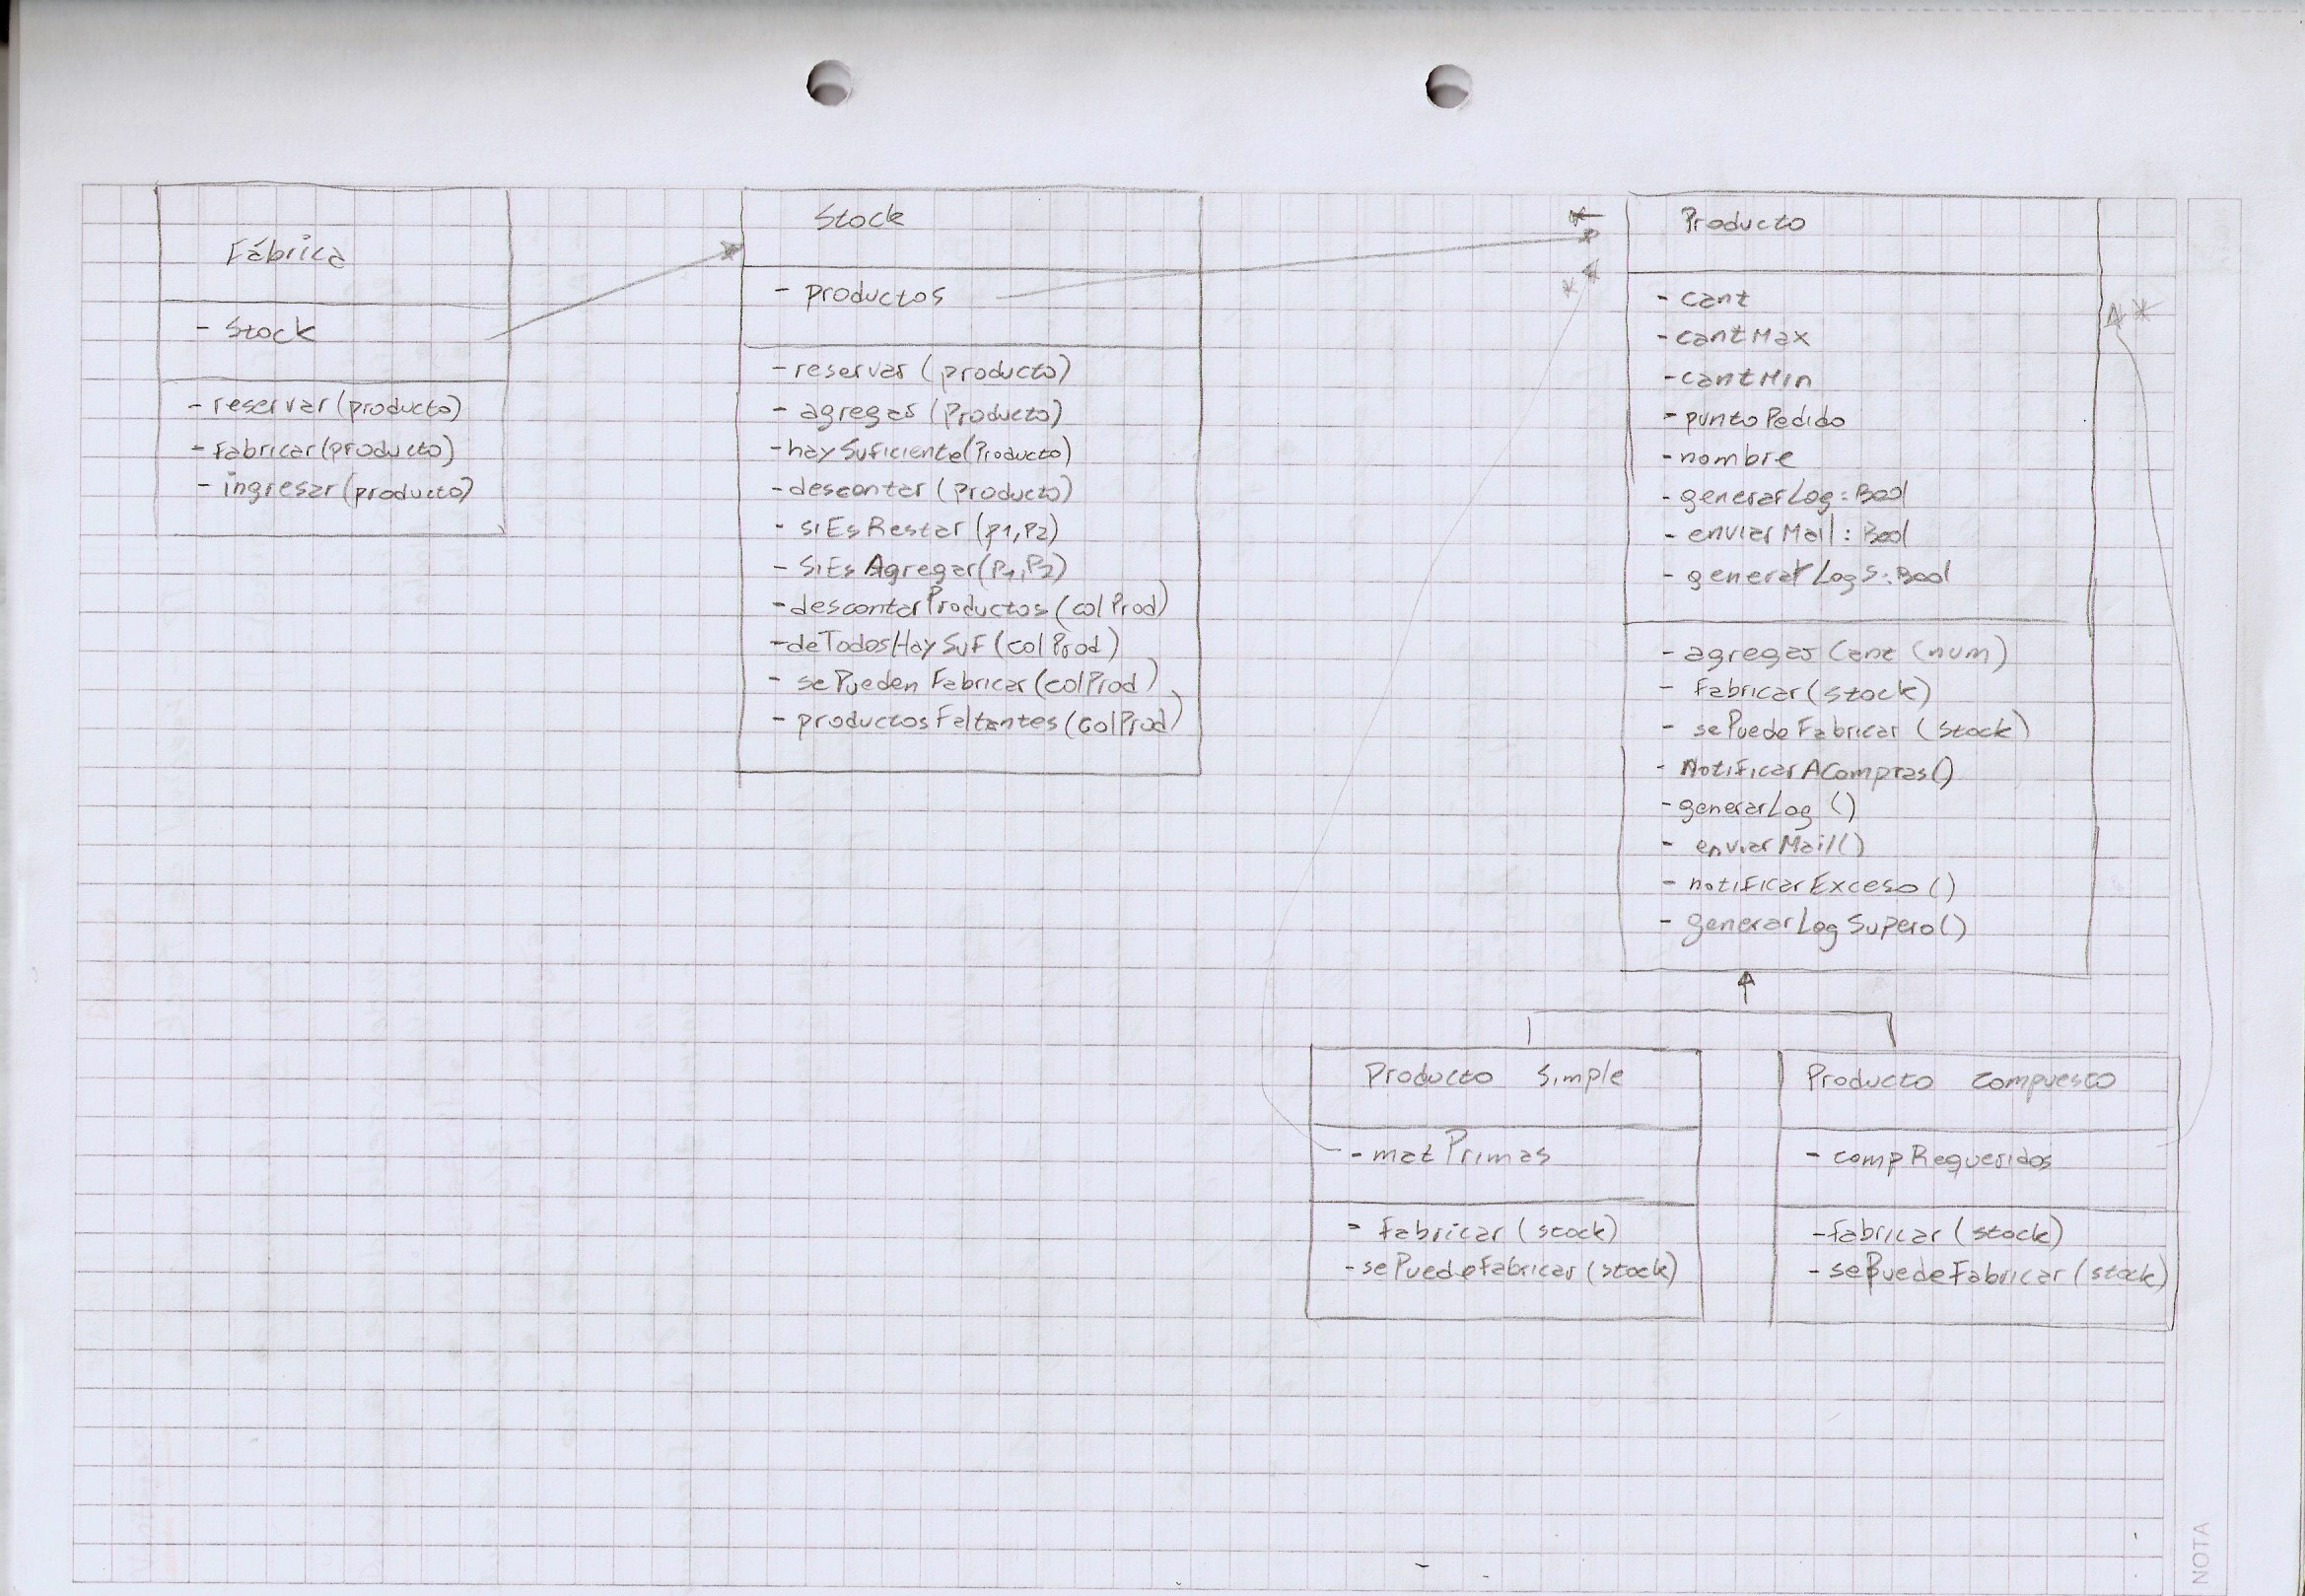 Fábrica
- Stock
- reservar (producto)
- Fabricar (producto)
- ingresar (producto)
Stock
- productos
- reservar (producto)
- agregar (Producto)
- haySuficiente (Producto)
- descontar (producto)
- siEsRestar (p1, P2)
- SiEsAgregar (P1, P2)
- descontarProductos (colProd)
- deTodosHaySuf (colProd)
- sePuedenFabricar (colProd)
- productosFaltantes (colProd)
*
*
Producto
- cant
- cantMax
- cantMin
- puntoPedido
- nombre
- generarLog : Bool
- enviarMail : Bool
- generarLogS : Bool
- agregarCant (num)
- Fabricar (stock)
- sePuedeFabricar (Stock)
- NotificarACompras()
- generarLog ()
- enviarMail()
- notificarExceso ()
- generarLogSupero()
*
Producto Simple
- matPrimas
- Fabricar (stock)
- sePuedeFabricar (stock)
Producto Compuesto
- compRequeridos
- fabricar (stock)
- sePuedeFabricar (stock)
NOTA